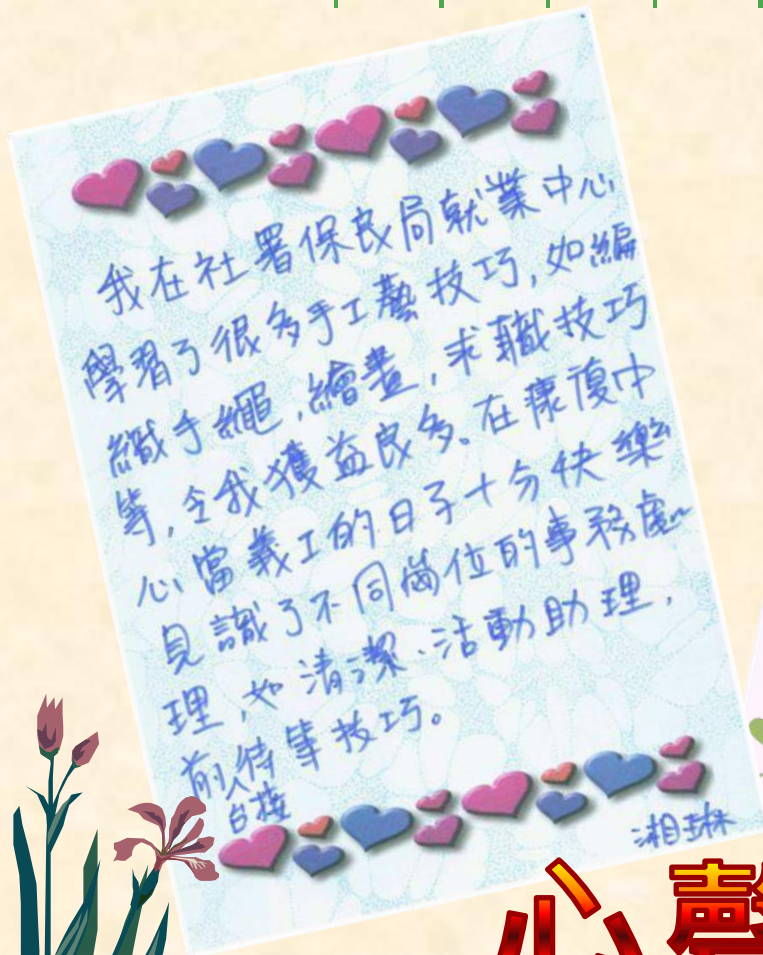 我在社署保良局就業中心
學習了很多手工藝技巧,如編
織手繩,繪畫,求職技巧
等,令我獲益良多。在康復中
心當義工的日子十分快樂
見識了不同崗位的事務處
理,如清潔、活動助理,
前台接待等技巧。
湘琳
心聲